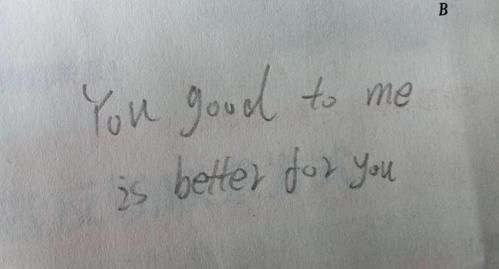 B
You good to me
is better for you